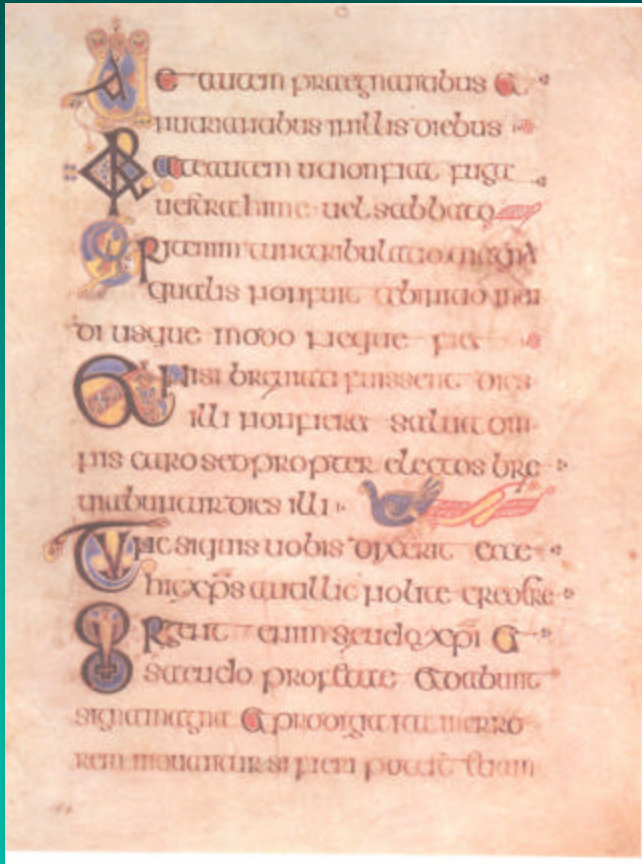 Uae autem praegnantibus et
nutrientibus in illis diebus
Orate autem ut non fiat fuga
uestra hieme uel sabbato
Erit enim tunc tribulatio magna
qualis non fuit ab initio mun
di usque modo neque fiet
Et nisi breuiati fuissent dies
illi non fieret salua om
nis caro sed propter electos bre
uiabuntur dies illi
Tunc si quis uobis dixerit ecce
hic xps aut illic nolite credere
Surgent enim seudo xpi et
saeudo profetae et dabunt
signa magna et prodigia ita ut in erro
rem inducantur si fieri potest etiam